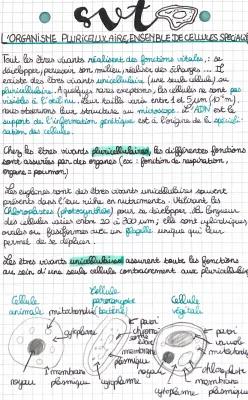 svt
L'ORGANISME PLURICELLULAIRE, ENSEMBLE DE CELLULES SPÉCIALI
Tout les êtres vivants réalisent des fonctions vitales : se
développer, percevoir son milieu, réaliser des échanges ... Il
existe des êtres vivants unicellulaire (une seule cellule) ou
pluricellulaire. A quelques rares exceptions, les cellules ne sont pas
visibles à l'œil nu, leur taille varie entre 1 et 5 µm (10⁻⁶m),
nous observons leur structure au microscope. L'ADN est le
support de l'information génétique est à l'origine de la spéciali-
sation des cellules.
Chez les êtres vivants pluricellulaires, les différentes fonctions
sont assurées par des organes (ex : fonction de respiration,
organe : poumon)
Les euglènes sont des êtres vivants unicellulaires souvent
présents dans l'eau riche en nutriments. Utilisant les
chloroplastes (photosynthèse) pour se développer, la longueur
des cellules varie entre 20 à 300 µm ; elles sont cylindriques
ovales ou fusiformes avec un flagelle unique qui leur
permet de se déplacer.
Les êtres vivants unicellulaires assurent toute les fonctions
au sein d'une seule cellule contrairement aux pluricellulaire
Cellule
animale
mitochondrie
cytoplasme
noyau
membrane
plasmique
Cellule
procaryote
(bactérie)
cytoplasme
chromo
some
membrane
plasmique
Cellule
végétale
paroi
vacuole
mitochondrie
chloroplaste
membrane
plasmique
noyau
cytoplasme